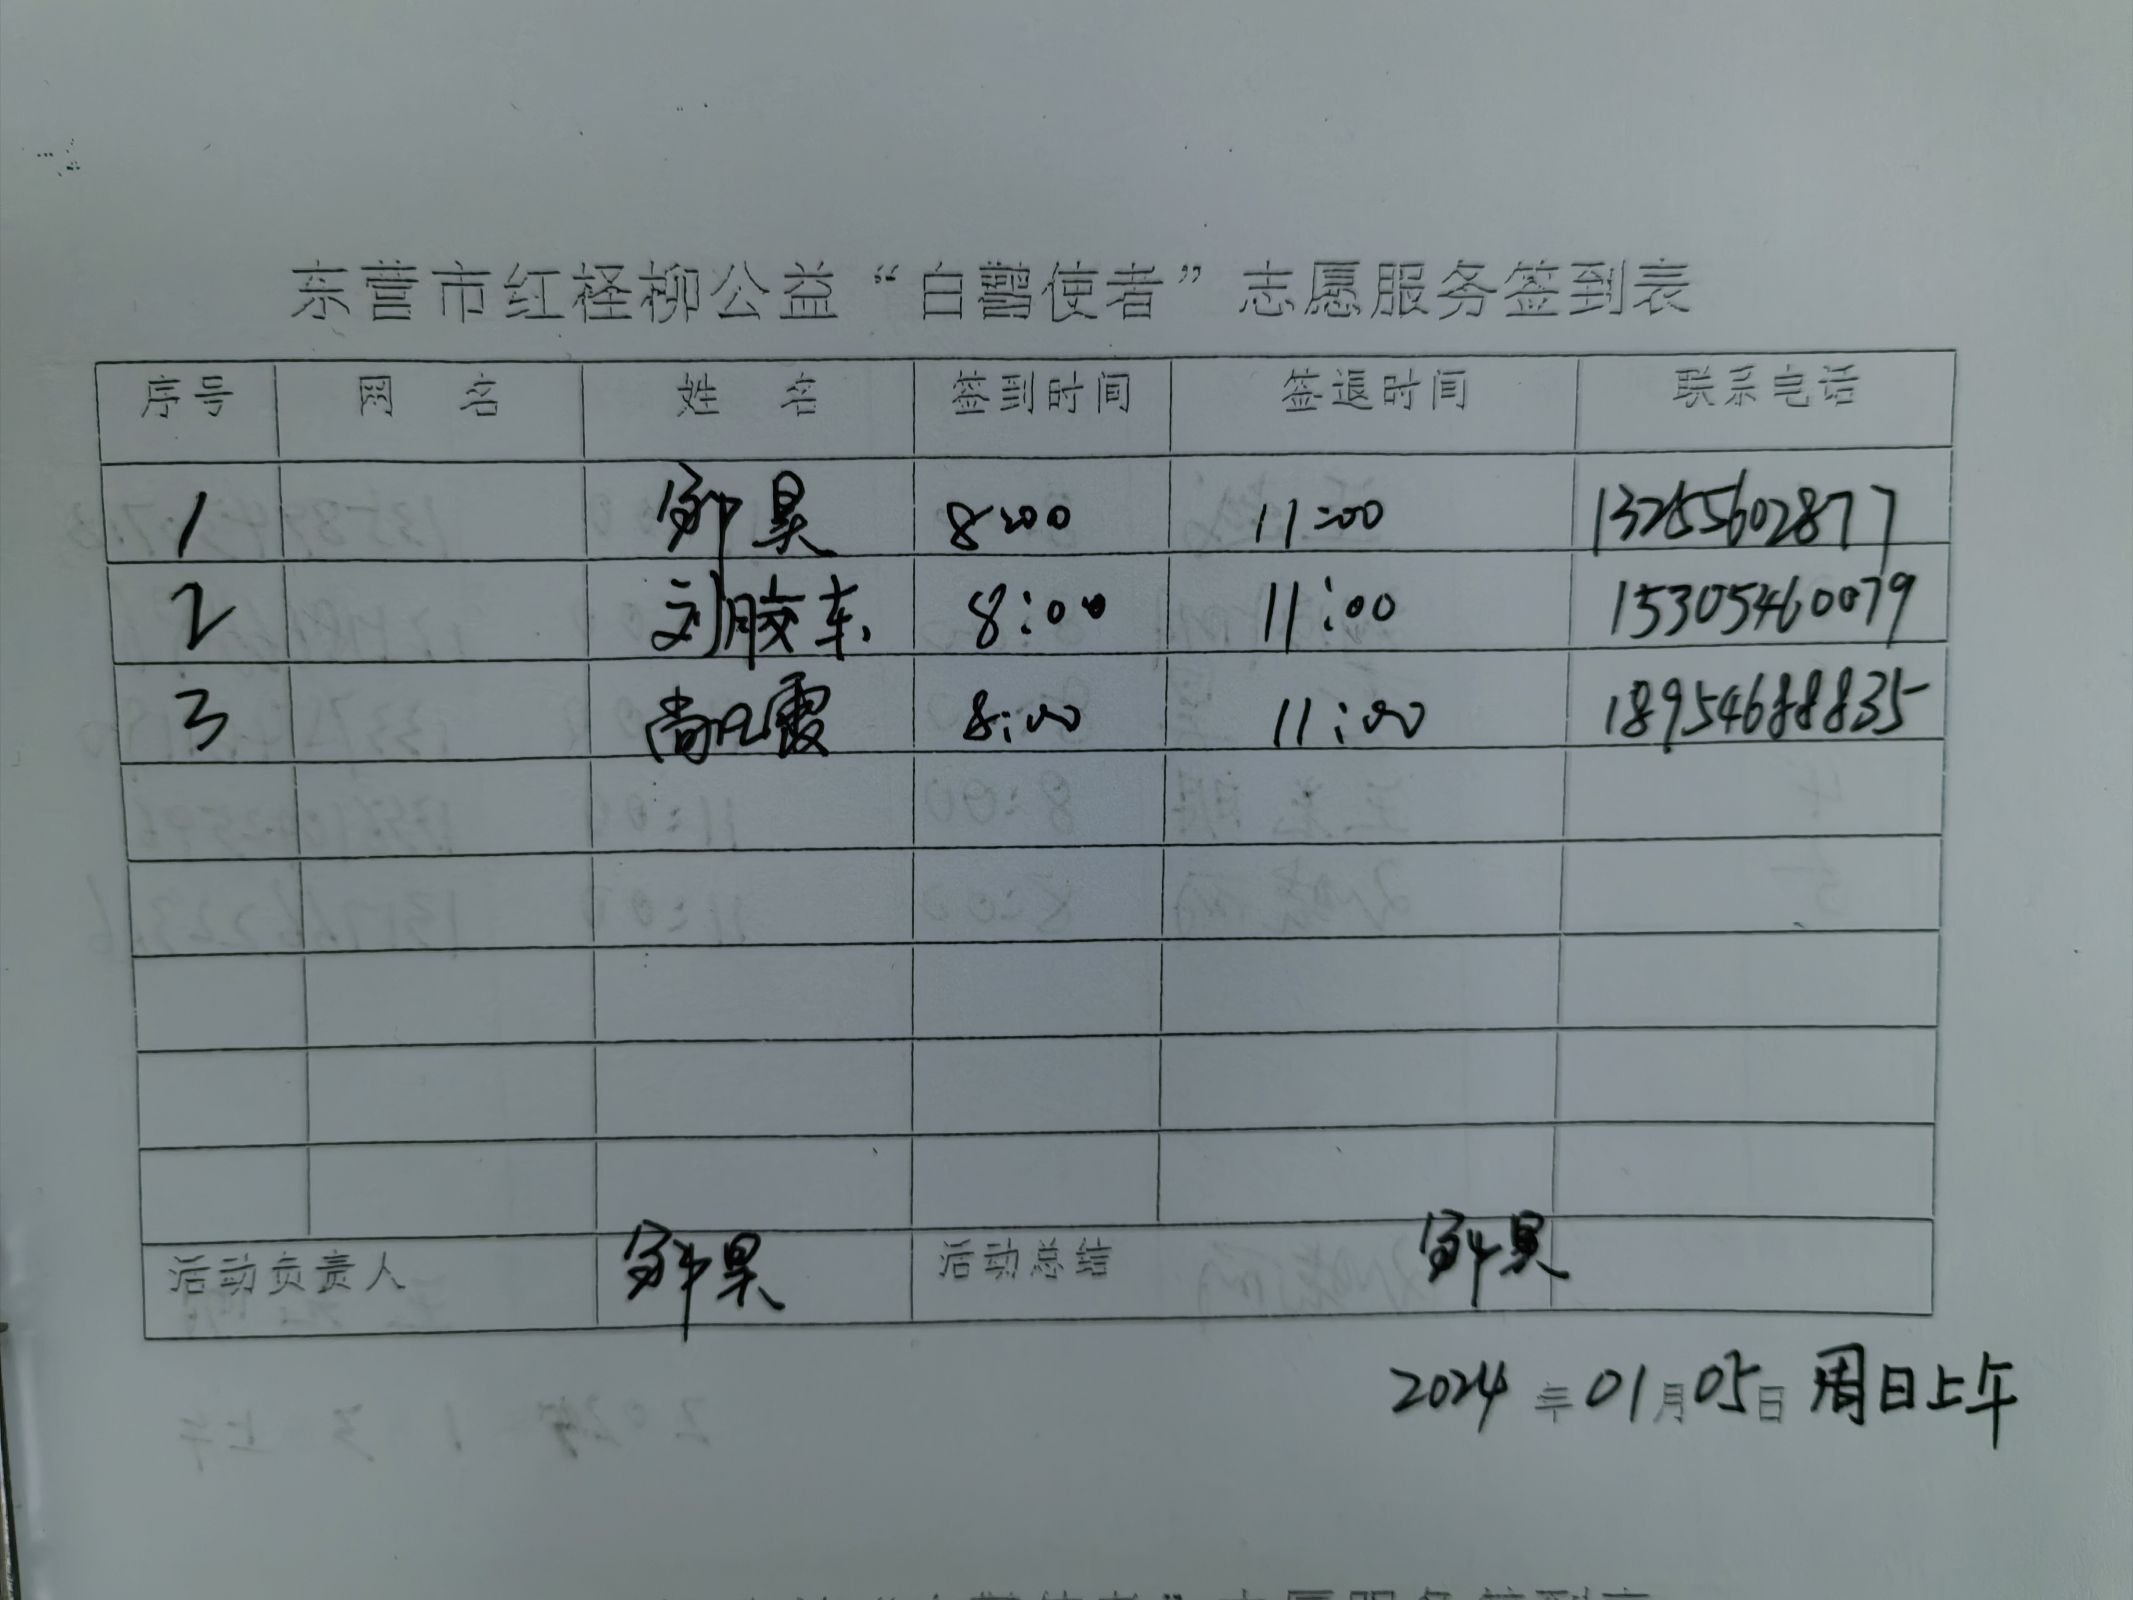 东营市红柽柳公益“白鹭使者”志愿服务签到表
序号 网 名 姓 名 签到时间 签退时间 联系电话
1 昊 8:00 11:00 13255602877
2 刘胶东 8:00 11:00 15305460079
3 尚凡霞 8:00 11:00 18954688835
活动负责人 昊 活动总结 昊
2024年01月05日 周日上午